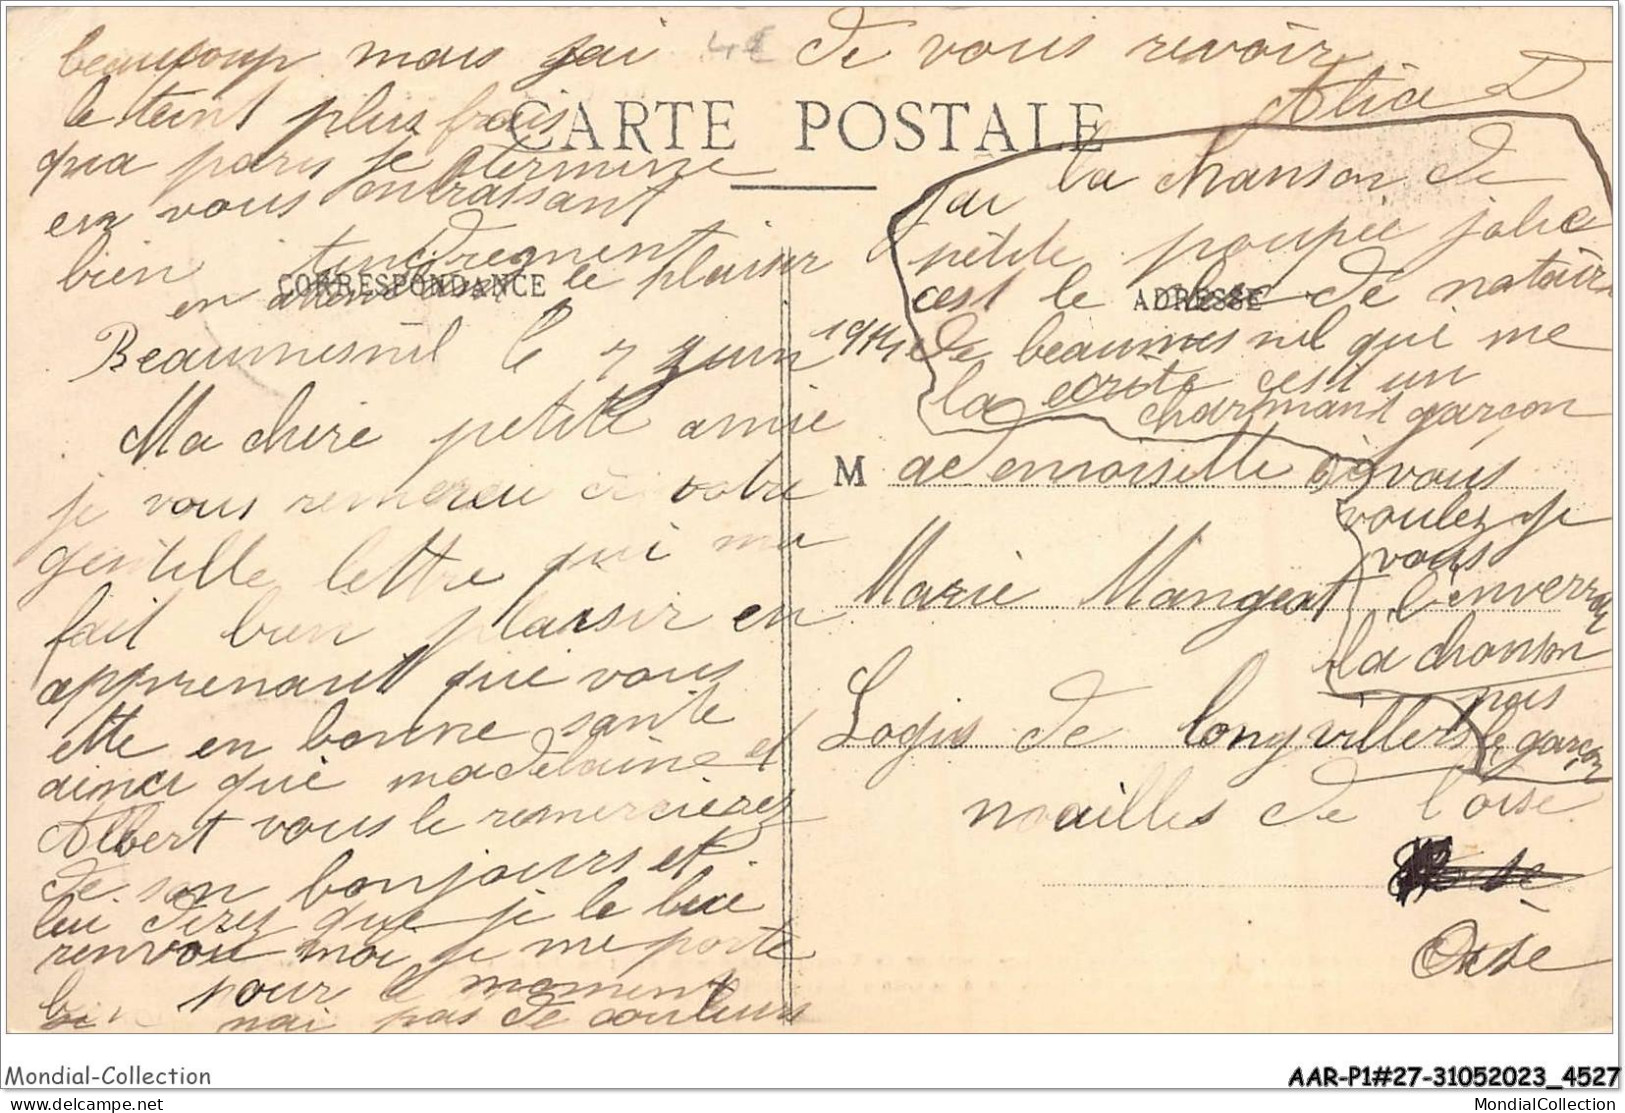 beaucoup mais jai 4€ de vous revoir
Alia D
le teint plus frais
CARTE POSTALE
qua paris je termine
en vous enbrassant
bien tendrement
en attendant le plaisir
CORRESPONDANCE
Beaumesnil le 7 juin 1914
Ma chere petite amie
je vous remercie de votre
gentille lettre qui ma
fait bien plaisir en
apprenant que vous
ette en bonne sante
ainci que madelaine et
Albert vous le remercierez
de son bonjours et
lui direz que je le lui
renvoie moi je me porte
bien pour le moment
nai pas de couleurs
jai la chanson de
petite poupée jolie
cest le clerc de notair
ADRESSE
de beaumesnil qui me
la écrite cest un
charmant garçon
M ademoiselle si vous
voulez je
vous
Marie Mangeat l'enverrai
la chanson
pas
Logis de longvillers le garçon
noailles de l'oise
Oise
Mondial-Collection
AAR-P1#27-31052023_4527
delcampe.net
MondialCollection